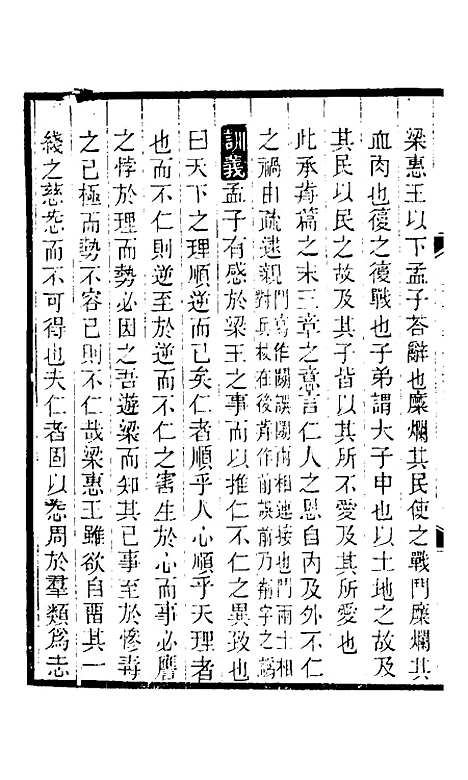 梁惠王以下孟子荅辭也糜爛其民使之戰鬥糜爛其
血肉也復之復戰也子弟謂大子申也以土地之故及
其民以民之故及其子皆以其所不愛及其所愛也
此承歬篇之末三章之意言仁人之恩自內及外不仁
之禍由疏逮親鬥寫作鬭誤鬭兩相連接也鬥兩士相
對兵杖在後歬作前誤前乃翦字之譌
訓義孟子有感於梁王之事而以推仁不仁之異致也
曰天下之理順逆而已矣仁者順乎人心順乎天理者
也而不仁則逆至於逆而不仁之害生於心而事必應
之悖於理而勢必因之吾遊梁而知其已事至於慘毒
之已極而勢不容已則不仁哉梁惠王雖欲自畱其一
綫之慈㤅而不可得也夫仁者固以㤅周於羣類爲志